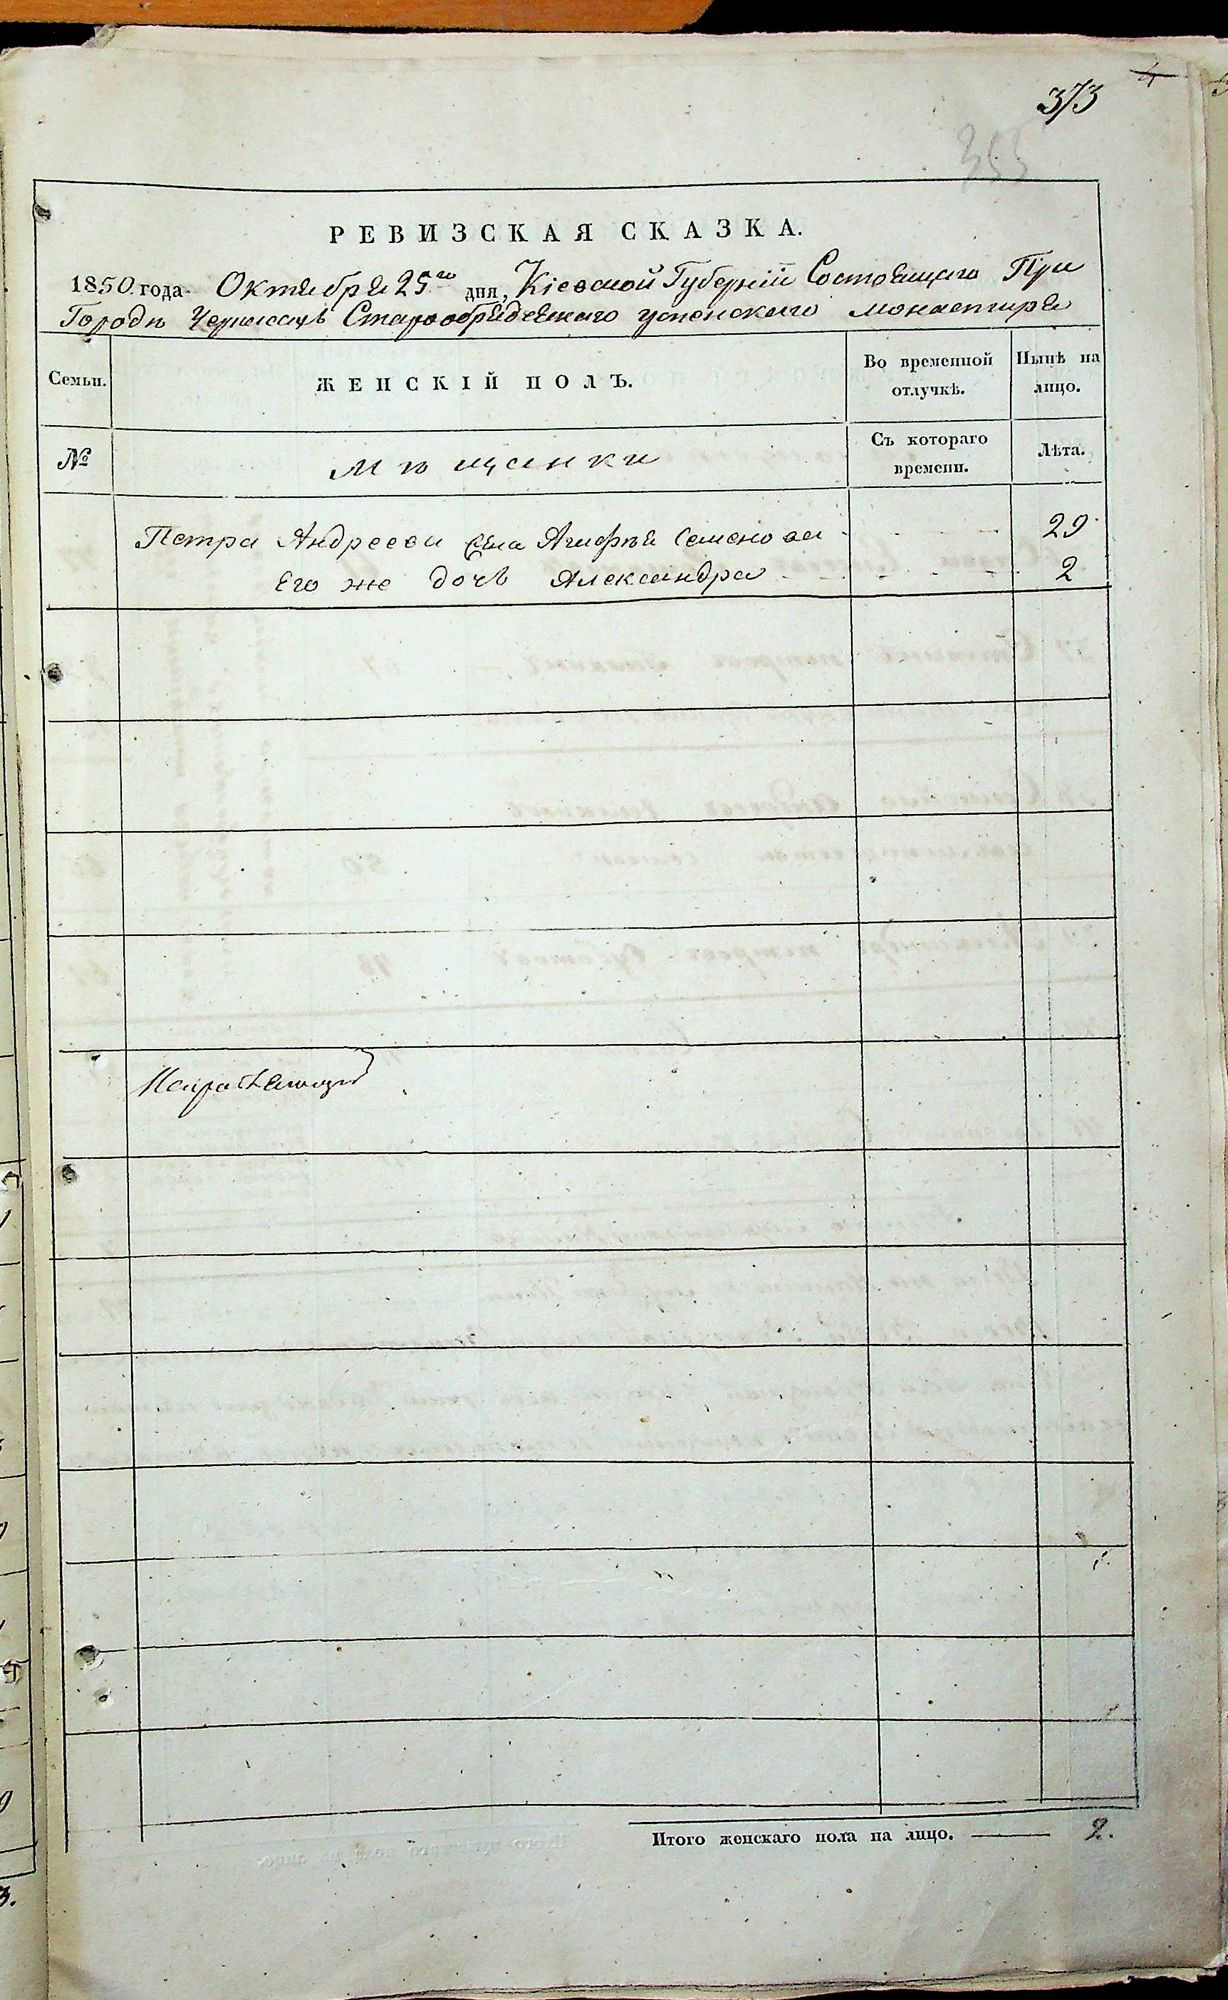 4
373
353
РЕВИЗСКАЯ СКАЗКА.
1850 года Октября 25го дня, Кіевской Губерніи Состоящаго При
Городѣ Черкассахъ Старообрядческаго успенскаго монастыря
Семьи. ЖЕНСКІЙ ПОЛЪ. Во временной отлучкѣ. Нынѣ на лицо.
№ мѣщанки Съ котораго времени. Лѣта.
Петра Андреева Агафья Семенова 29
Его же дочь Александра 2
Итого женскаго пола на лицо. 2.